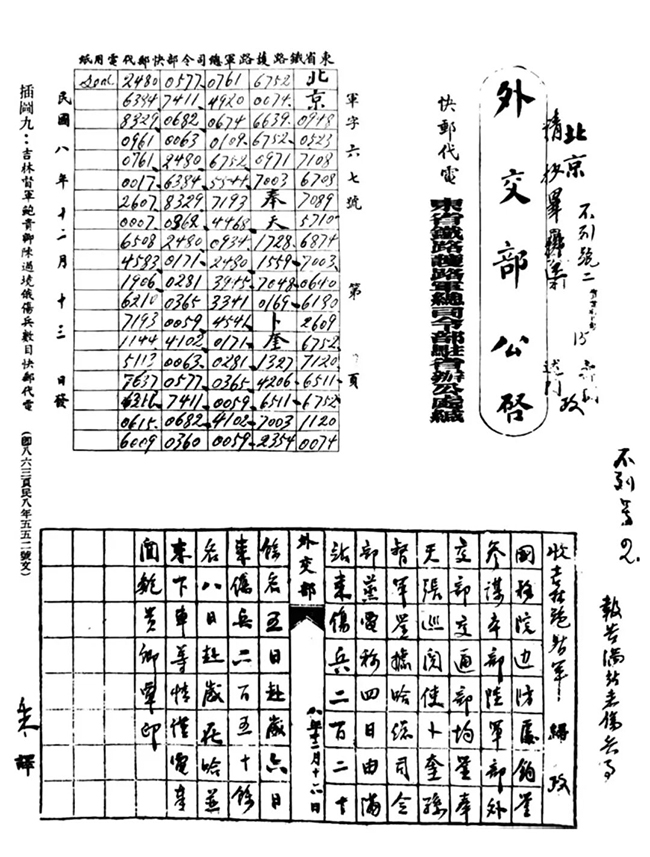 不列等2.
報告滿站來傷兵事
北京
不列號二
外交部公啓
東省鐵路護路軍總司令部駐省辦公處緘
快郵代電
東省鐵路護路軍總司令部快郵代電用紙
軍字六七號 第 頁
北京 0948 0523 7108 6708 7089 5710 6874 7003 0640 6180 2609 6752 7120 6511 6752 1120 0074
6752 0074 6639 6752 0971 7003 奉天 1728 1559 7048 0169 卜奎 1327 4206 6511 7003 2354
0761 4920 0674 0109 6752 5544 7193 4468 0934 2480 3945 3341 4541 0171 0281 0365 0059 4102 0059
0577 7411 0682 0063 2480 6384 8329 0368 2480 0171 0281 0365 0059 4102 0063 0577 7411 0682 0360
2480 6384 8329 0961 0761 0017 2607 0007 6508 4583 1906 6210 7193 1144 5113 7637 6210 0615 6009
Seal
民國八年十二月十三日發
插圖九：吉林督軍鮑貴卿陳過境俄傷兵數目快郵代電
（卽八六三頁民八年五五二號文）
收吉林鮑督軍
國務院邊防處鈞鑒
參謀本部陸軍部外
交部交通部均鑒奉
天張巡閱使卜奎孫
督軍鑒據哈總司令
部蒸電稱四日由滿
站來傷兵二百二十
外交部 八年十二月十六日
餘名五日赴崴六日
來傷兵二百五十餘
名八日赴崴在哈並
未下車等情謹電奉
聞鮑貴卿覃印